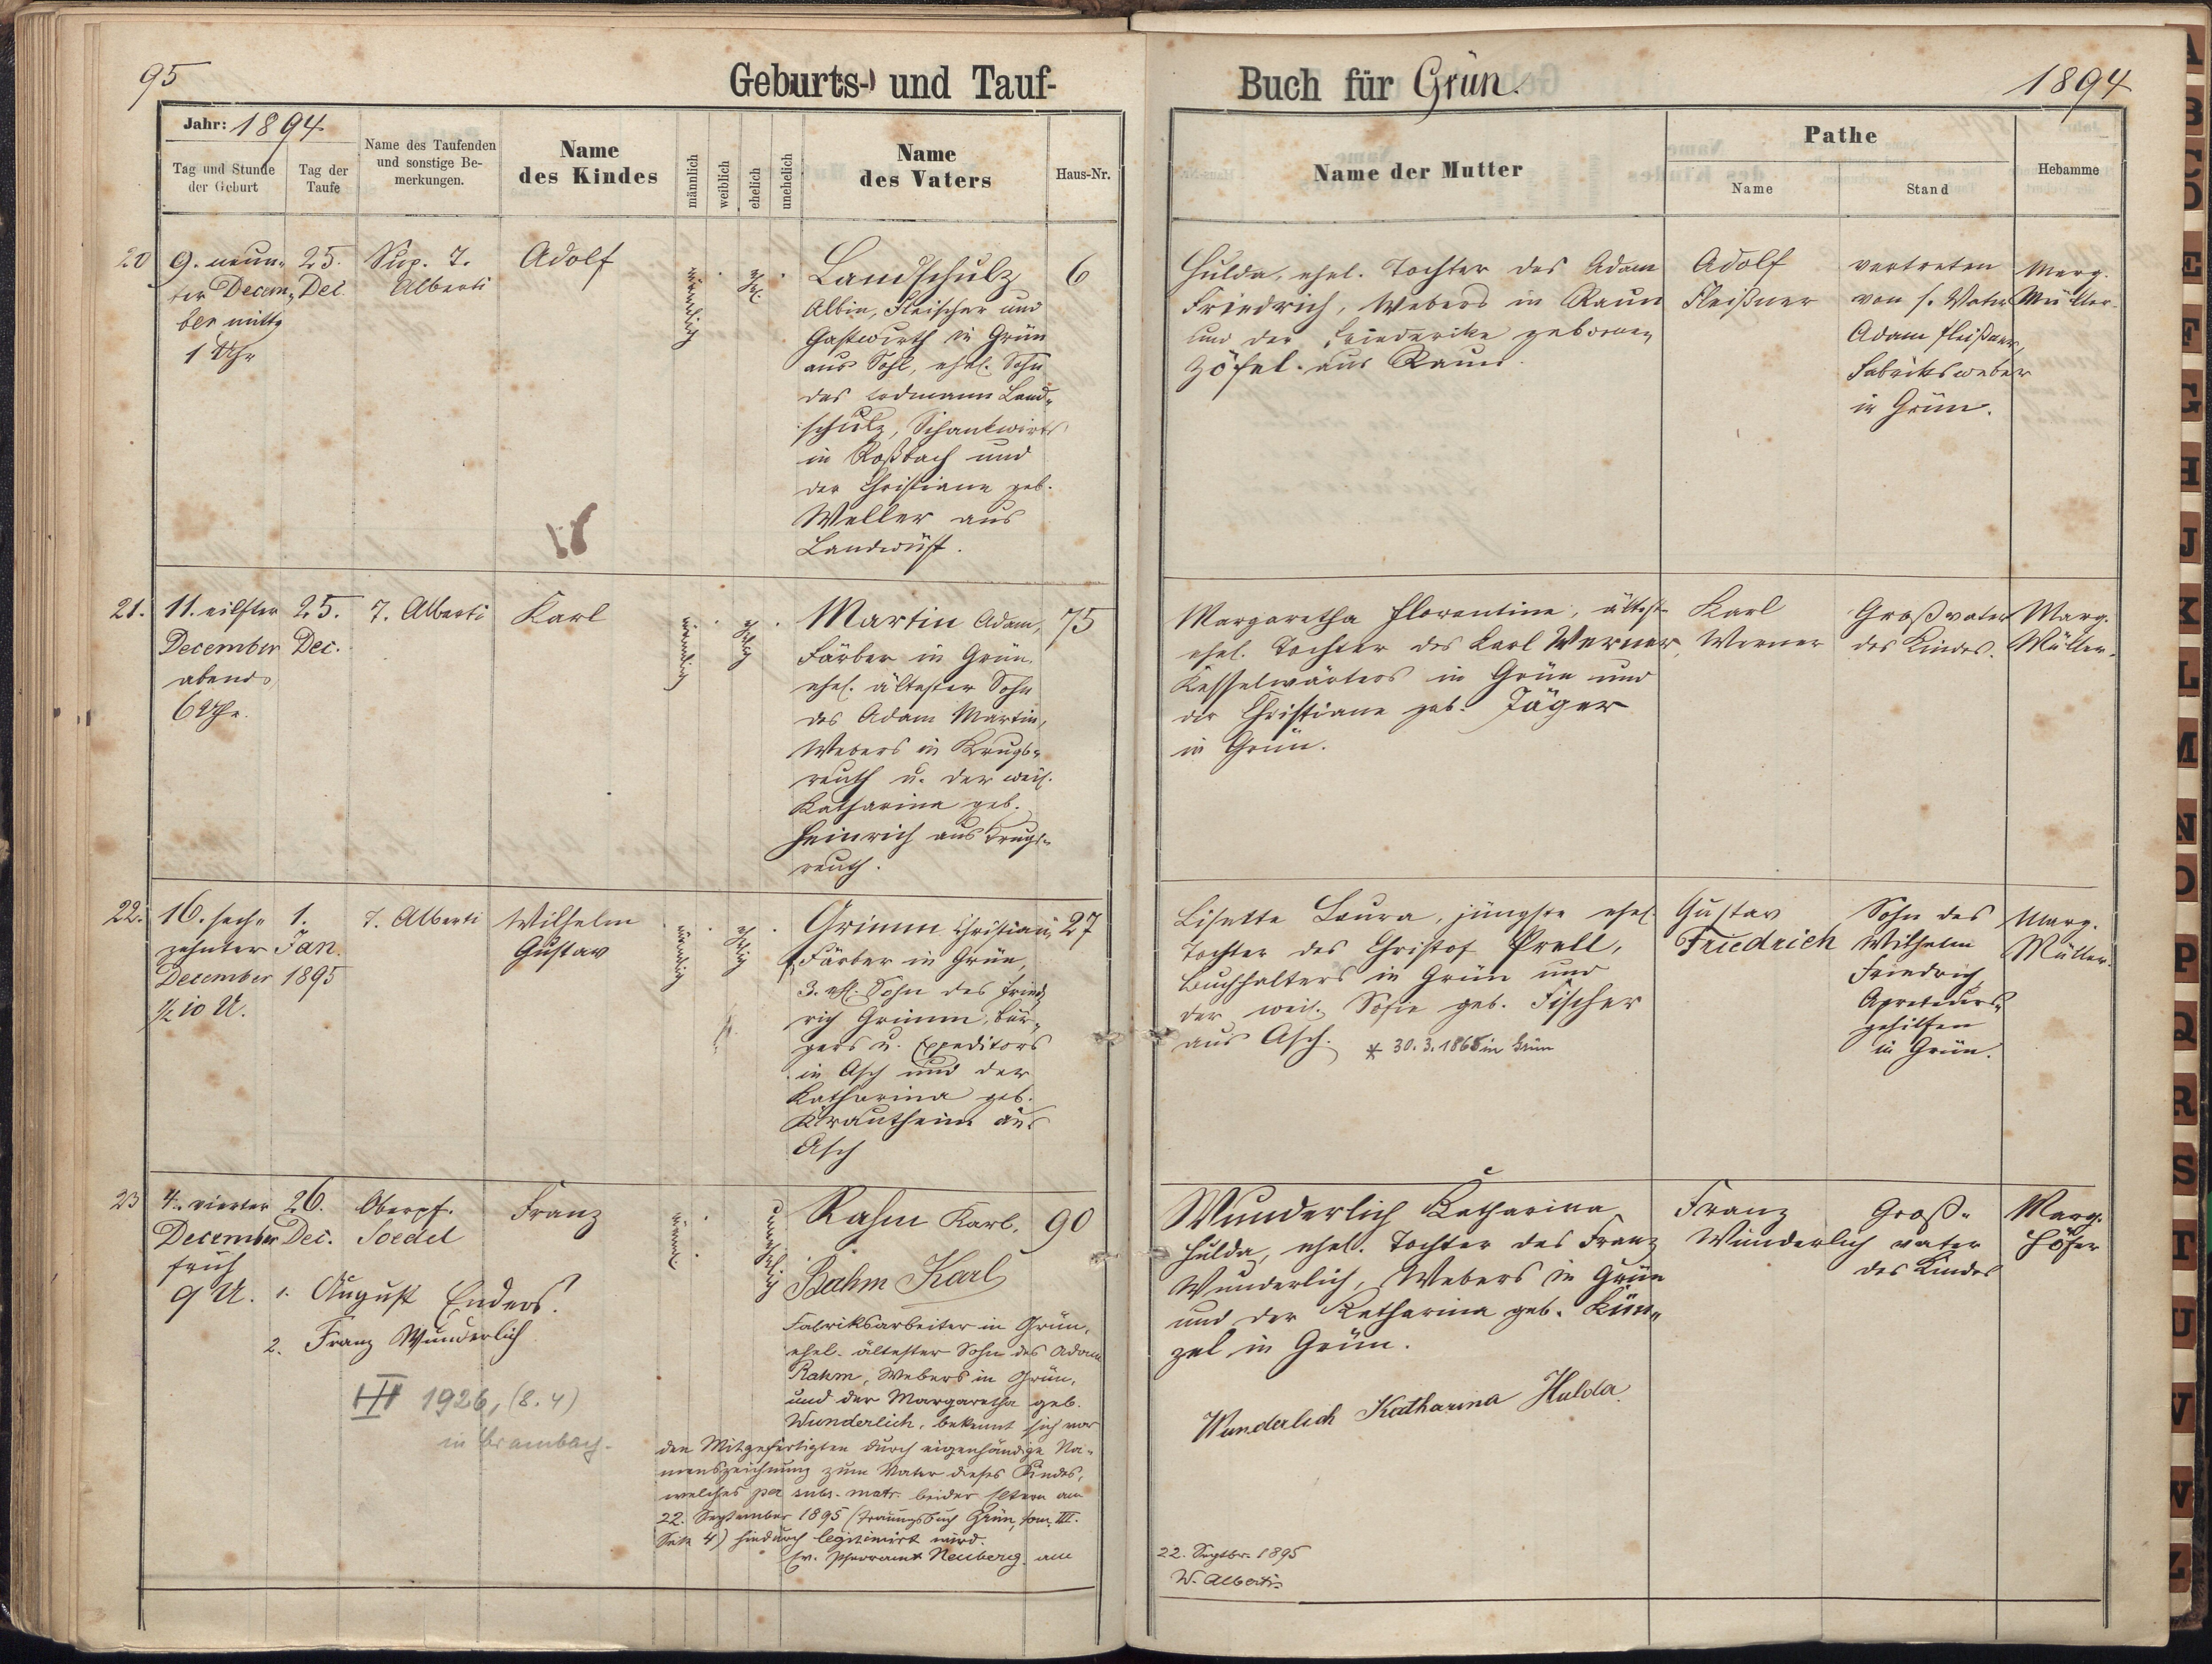 95
Geburts- und Tauf-
Buch für Grün.
1894
Jahr: 1894
Tag und Stunde der Geburt
Tag der Taufe
Name des Taufenden und sonstige Be-merkungen.
Name des Kindes
männlich
weiblich
ehelich
unehelich
Name des Vaters
Haus-Nr.
Name der Mutter
Pathe
Name
Stand
Hebamme
20
9. neun-
ter Decem-
ber mittg
1 Uhr
25.
Dec.
Sup. T.
Alberti
Adolf
männlich
ehl.
Landschulz
Albin, Fleischer und
Gastwirth in Grün
aus Sohl, ehel. Sohn
des Erdmann Land-
schulz, Schankwirts
in Roßbach und
der Christiane geb.
Weller aus
Landwüst.
6
Hulda, ehel. Tochter des Adam
Friedrich, Webers in Raun
und der Friederike geborenen
Zöfel aus Raun.
Adolf
Fleißner
vertreten
von s. Vater
Adam Fleißner,
Fabriksweber
in Grün.
Marg.
Müller.
21.
11. eilfter
December
abends
6 Uhr.
25.
Dec.
T. Alberti
Karl
männlich
ehelig
Martin Adam,
Färber in Grün,
ehel. ältester Sohn
des Adam Martin,
Webers in Krugs-
reuth u. der weil.
Katharina geb.
Heinrich aus Krugs-
reuth.
75
Margaretha Florentine, älteste
ehel. Tochter des Karl Werner,
Kesselwärters in Grün und
der Christiane geb. Jäger
in Grün.
Karl
Werner
Großvater
des Kindes.
Marg.
Müller.
22.
16. sech-
zehnter
December
½ 10 U.
1.
Jan.
1895
T. Alberti
Wilhelm
Gustav
männlich
ehelig
Grimm Christian,
Färber in Grün,
3. ehl. Sohn des Fried-
rich Grimm, Bür-
gers u. Expeditors
in Asch und der
Katharina geb.
Krautheim aus
Asch
27
Lisette Laura, jüngste ehel.
Tochter des Christof Prell,
Buchhalters in Grün und
der weil. Sofie geb. Fischer
aus Asch. * 30.3.1868 in Grün
Gustav
Friedrich
Sohn des
Wilhelm
Friedrich
Apreteurs-
gehilfen
in Grün.
Marg.
Müller.
23
4. vierter
December
früh
9 U.
26.
Dec.
Oberpf.
Soedel
Franz
1. August Enders.
2. Franz Wunderlich
1926, (8.4)
in Brambach.
männl.
unehelig
Rahm Karl.
Rahm Karl
Fabriksarbeiter in Grün,
ehel. ältester Sohn des Adam
Rahm, Webers in Grün,
und der Margaretha geb.
Wunderlich, bekennt sich vor
den Mitgefertigten durch eigenhändige Na-
menszeichnung zum Vater dieses Kindes,
welches per subs. matr. beider Eltern am
22. September 1895 (Trauungsbuch Grün, tom. III.
Seite 4) hiedurch legitimirt wird.
Ev. Pfarramt Neuberg am
90
Wunderlich Katharina
Hulda, ehel. Tochter des Franz
Wunderlich, Webers in Grün
und der Katharina geb. Kün-
zel in Grün.
Wunderlich Katharina Hulda
22. Septbr. 1895
W. Alberti
Franz
Wunderlich
Groß-
vater
des Kindes
Marg.
Höfer